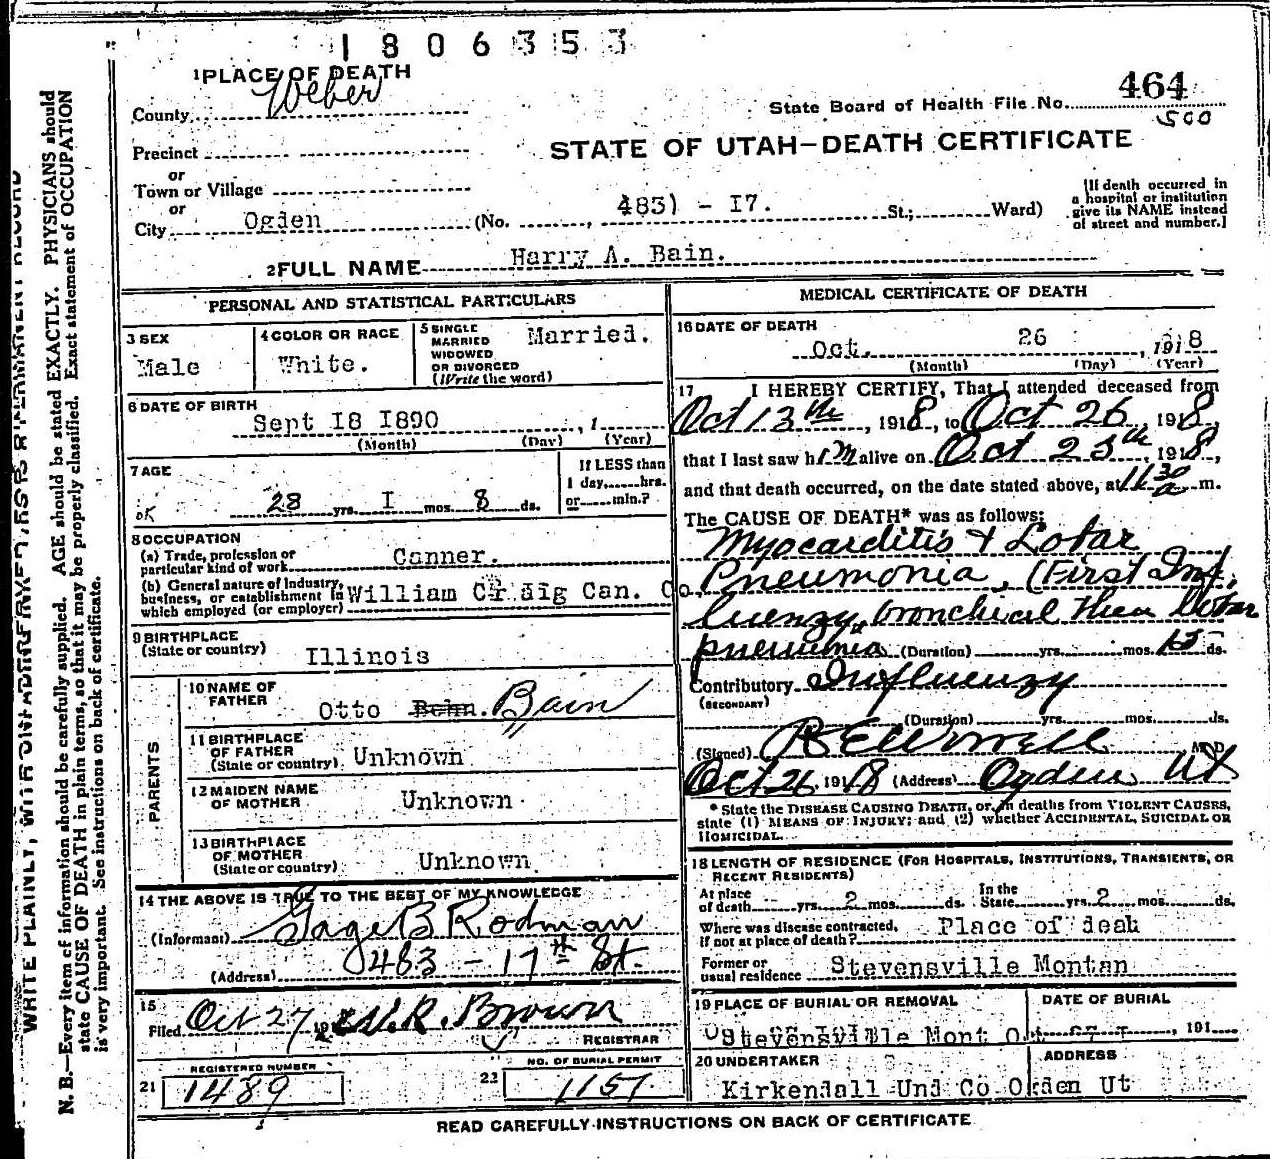 1806353
1 PLACE OF DEATH
County Weber
State Board of Health File No. 464
500
STATE OF UTAH—DEATH CERTIFICATE
Precinct
or
Town or Village
or
City Ogden (No. 483) - I7. St.; Ward)
[If death occurred in
a hospital or institution
give its NAME instead
of street and number.]
2 FULL NAME Harry A. Bain.
PERSONAL AND STATISTICAL PARTICULARS
3 SEX
Male
4 COLOR OR RACE
White.
5 SINGLE
MARRIED
WIDOWED
OR DIVORCED
(Write the word)
Married.
6 DATE OF BIRTH
Sept I8 I890 , 1
(Month) (Day) (Year)
7 AGE
OK 28 yrs. I mos. 8 ds.
If LESS than
1 day, hrs.
or min.?
8 OCCUPATION
(a) Trade, profession or
particular kind of work Canner.
(b) General nature of Industry,
business, or establishment in
which employed (or employer) William Craig Can. Co.
9 BIRTHPLACE
(State or country) Illinois
PARENTS
10 NAME OF
FATHER Otto Behn. Bain
11 BIRTHPLACE
OF FATHER
(State or country) Unknown
12 MAIDEN NAME
OF MOTHER Unknown
13 BIRTHPLACE
OF MOTHER
(State or country) Unknown
14 THE ABOVE IS TRUE TO THE BEST OF MY KNOWLEDGE
(Informant) Gage B Rodman
(Address) 483 - 17th St.
15
Filed Oct 27, 191 W.R. Brown
REGISTRAR
REGISTERED NUMBER
21 1489
NO. OF BURIAL PERMIT
22 1157
MEDICAL CERTIFICATE OF DEATH
16 DATE OF DEATH
Oct. 26 , 1918
(Month) (Day) (Year)
17 I HEREBY CERTIFY, That I attended deceased from
Oct 13th, 1918, to Oct 26, 1918,
that I last saw him alive on Oct 25th, 1918,
and that death occurred, on the date stated above, at 11 30 a m.
The CAUSE OF DEATH* was as follows:
Myocarditis & Lobar
Pneumonia, (First Inf
luenzy, bronchical then lobar
pneumnia (Duration) yrs. mos. 13 ds.
Contributory Influenzy
(SECONDARY)
(Duration) yrs. mos. ds.
(Signed) M. D.
Oct 26, 1918 (Address) Ogden Ut
* State the DISEASE CAUSING DEATH, or, in deaths from VIOLENT CAUSES,
state (1) MEANS OF INJURY; and (2) whether ACCIDENTAL, SUICIDAL OR
HOMICIDAL.
18 LENGTH OF RESIDENCE (FOR HOSPITALS, INSTITUTIONS, TRANSIENTS, OR
RECENT RESIDENTS)
At place
of death yrs. 2 mos. ds. In the
State yrs. 2 mos. ds.
Where was disease contracted,
if not at place of death? Place of deah
Former or
usual residence Stevensville Montan
19 PLACE OF BURIAL OR REMOVAL
Stevensville Mont
DATE OF BURIAL
, 191
20 UNDERTAKER
Kirkendall Und Co Ogden Ut
ADDRESS
READ CAREFULLY INSTRUCTIONS ON BACK OF CERTIFICATE
WRITE PLAINLY, WITH UNFADING INK—THIS IS A PERMANENT RECORD
N. B.—Every item of information should be carefully supplied. AGE should be stated EXACTLY. PHYSICIANS should
state CAUSE OF DEATH in plain terms, so that it may be properly classified. Exact statement of OCCUPATION
is very important. See instructions on back of certificate.